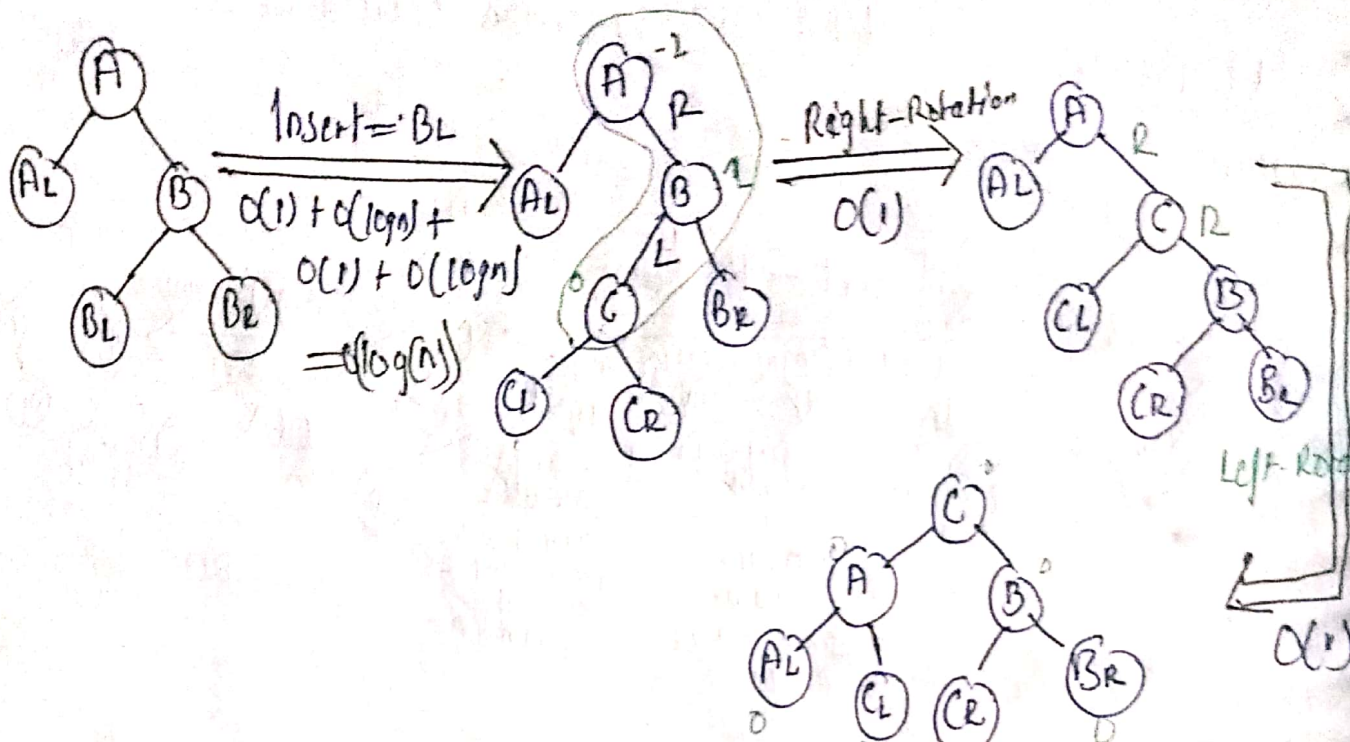 A
AL
B
BL
BR
Insert = BL
O(1) + O(logn) +
O(1) + O(logn)
= O(log(n))
A
-2
R
AL
B
1
L
0
C
BR
CL
CR
Right-Rotation
O(1)
A
R
AL
C
R
CL
B
CR
BR
Left-
O(1)
C
0
A
0
B
0
AL
0
CL
CR
BR
0